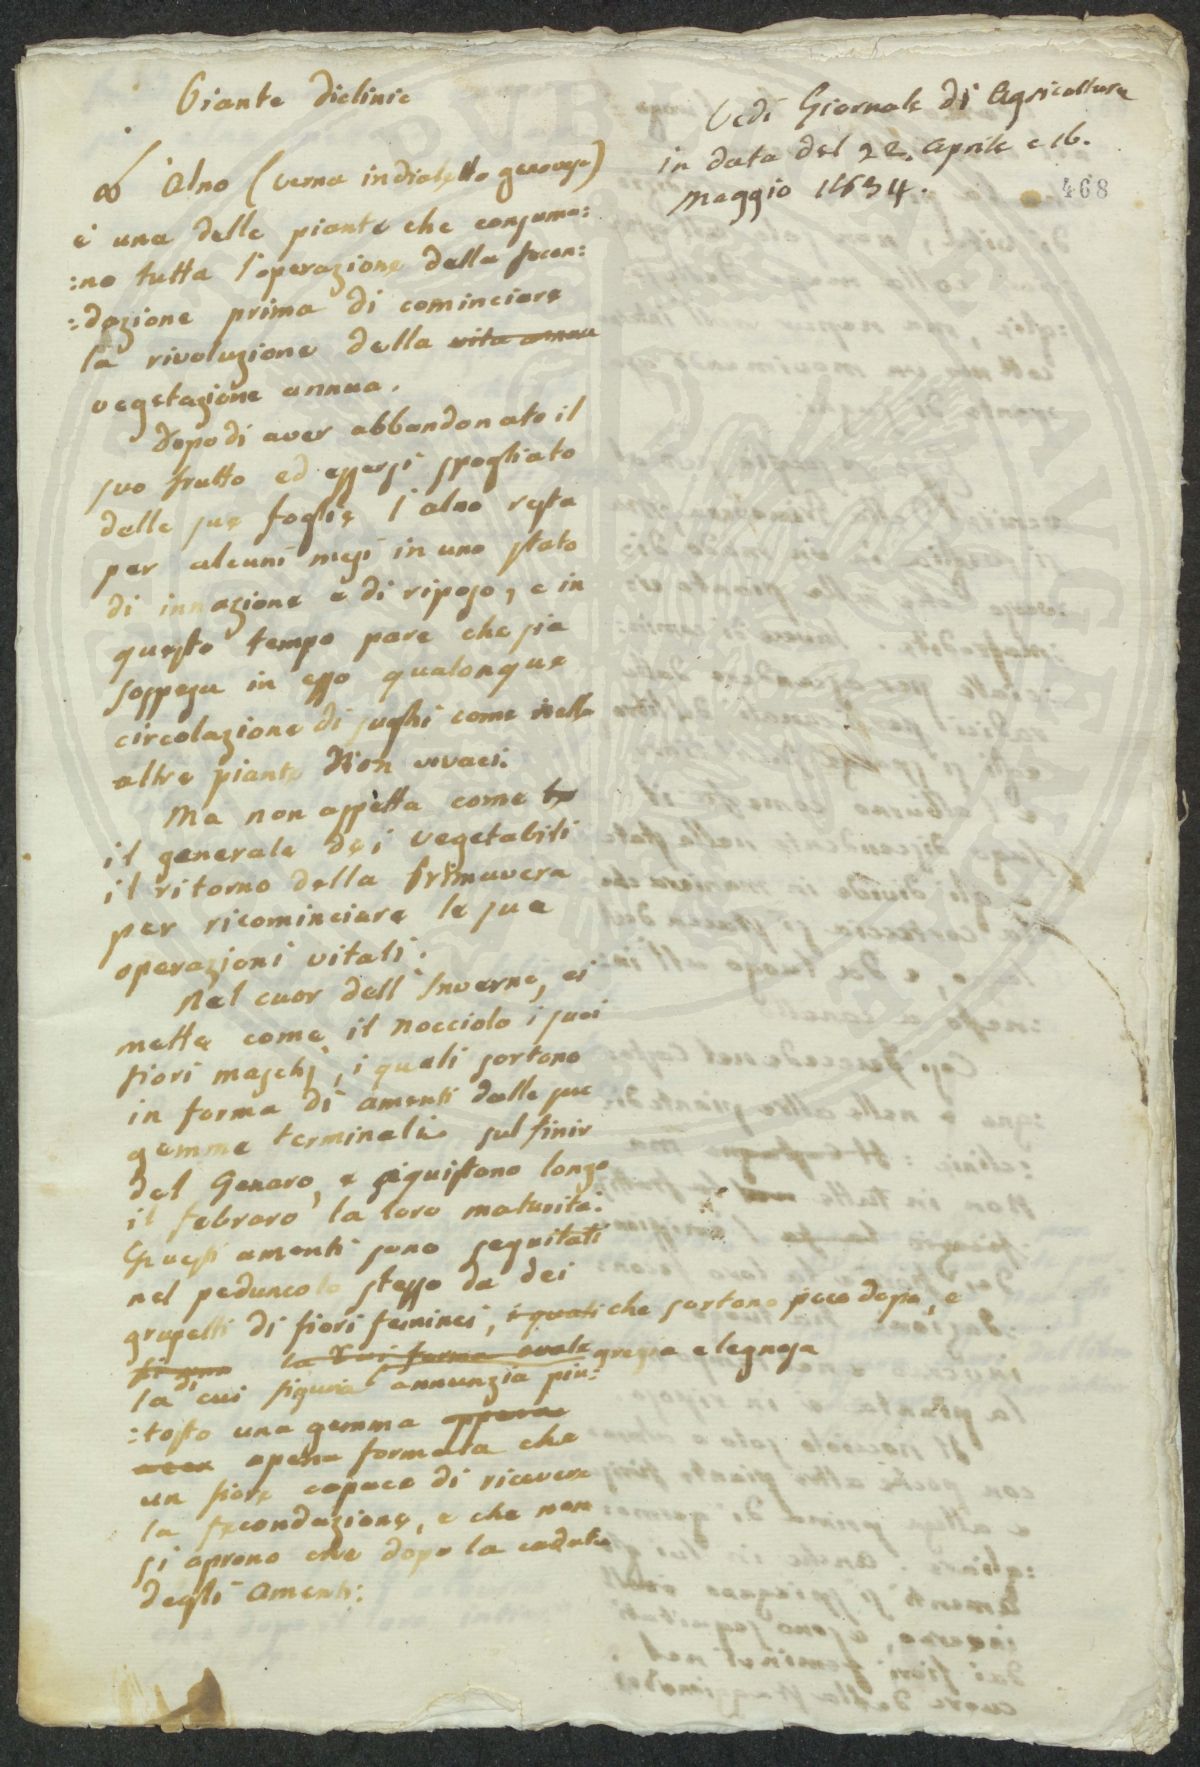 Piante diclinie
Vedi Giornale di Agricoltura
in data del 22. Aprile e 16.
Maggio 1834.
468
L'Alno (verna in dialetto genovese)
è una delle piante che consuma:
:no tutta l'operazione della fecon:
:dazione prima di cominciare
la rivoluzione della vita annua
vegetazione annua.
Dopo di aver abbandonato il
suo frutto ed essersi spogliato
delle sue foglie l'alno resta
per alcuni mesi in uno stato
di innazione e di riposo, e in
questo tempo pare che sia
sospesa in esso qualonque
circolazione di sughi come nelle
altre piante Non vivaci.
Ma non aspetta come
il generale dei vegetabili
il ritorno della Primavera
per ricominciare le sue
operazioni vitali.
Nel cuor dell'Inverno, ei
mette come il Nocciolo i suoi
fiori maschj, i quali sortono
in forma di amenti dalle sue
gemme terminali sul finir
del Genaro, e aquistano longo
il febraro la loro maturità.
Questi amenti sono seguitati
nel peduncolo stesso da dei
grupetti di fiori feminei, i quali che sortono poco dopo, e
la di cui forma ovale gregia e legnosa
la di cui figura annunzia piu:
:tosto una gemma appena
apena formata che
un fiore capace di ricevere
la fecondazione, e che non
si aprono che dopo la caduta
degli Amenti: